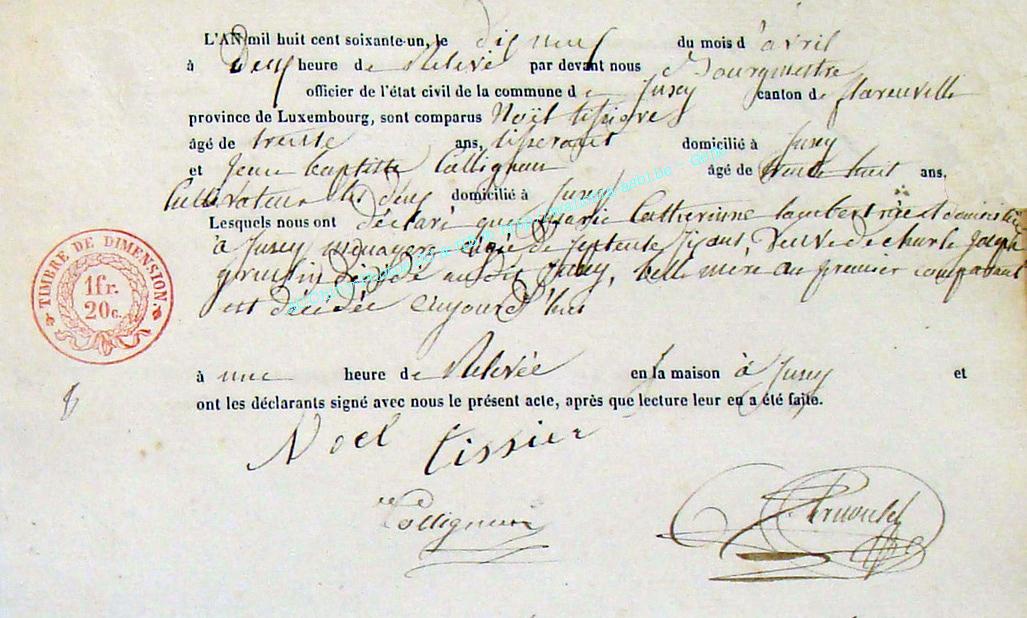 L'AN mil huit cent soixante-un, le dis neuf du mois d'avril
à Deux heure de Relevé par devant nous Bourgmestre
officier de l'état civil de la commune de Juzey canton de
province de Luxembourg, sont comparus Noël
âgé de trente ans, tisserant domicilié à Jusey
et Jean baptiste Collignon âgé de trente huit ans,
Cultivateur les deux domicilié à Jusey
Lesquels nous ont déclaré que Marie Catherinne Lambert
à Jusey âgée de ans, Veuve de charle joseph
décédé audit Jusey, belle mère au premier comparant
est décédée aujourd'hui
à une heure de Relevée en la maison à Jusey et
ont les déclarants signé avec nous le présent acte, après que lecture leur en a été faite.
Noel tissier
Collignon
TIMBRE DE DIMENSION.
1fr.
20c.